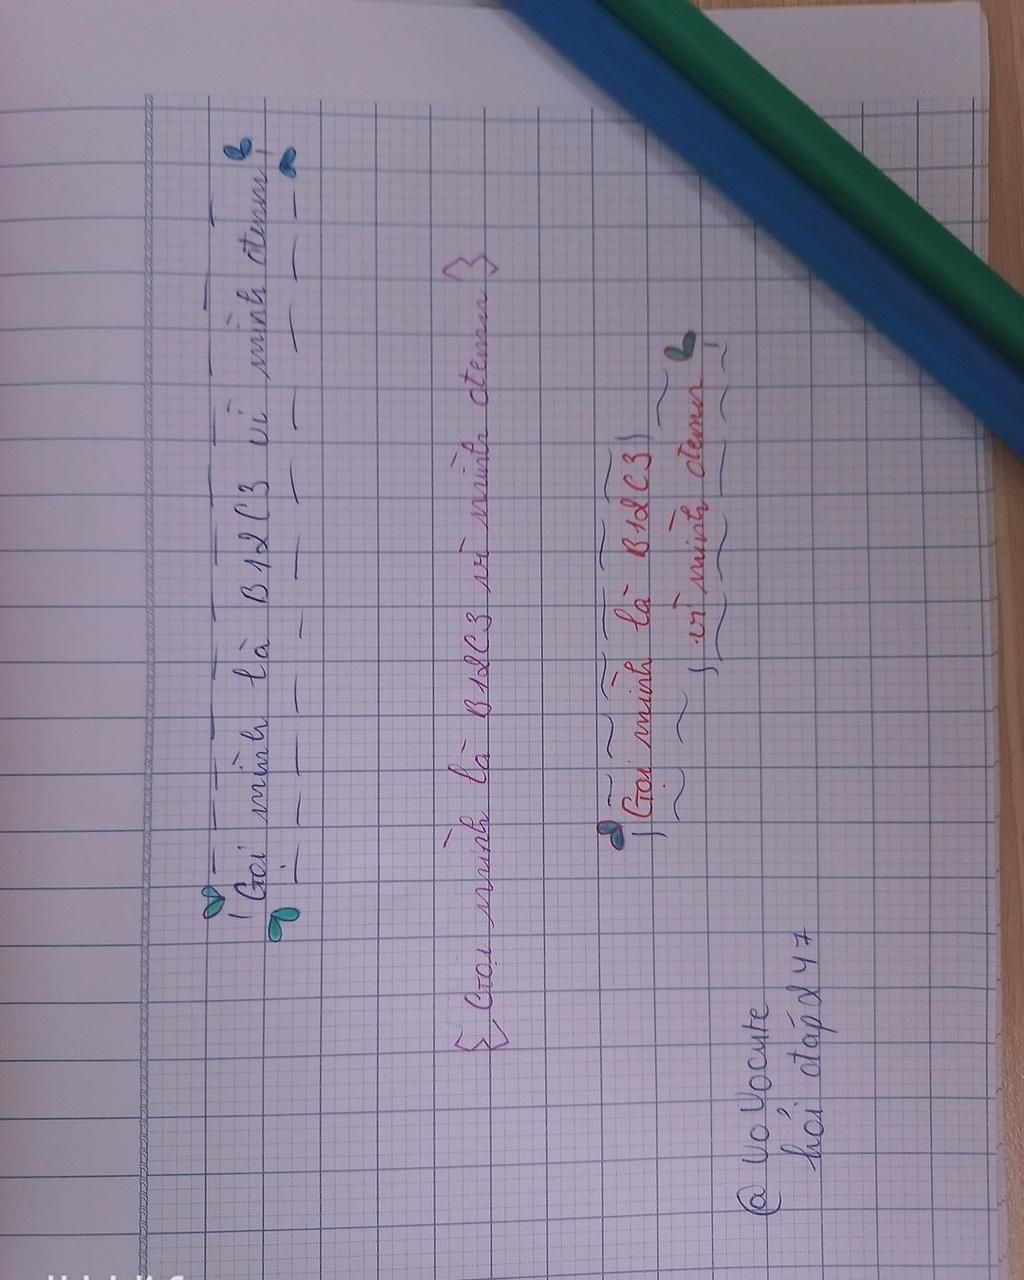 Gọi mình là B12C3 vì mình đennn
Gọi mình là B12C3 vì mình đennn
Gọi mình là B12C3
vì mình đennn
@ UOUOcute
hỏi đáp 247